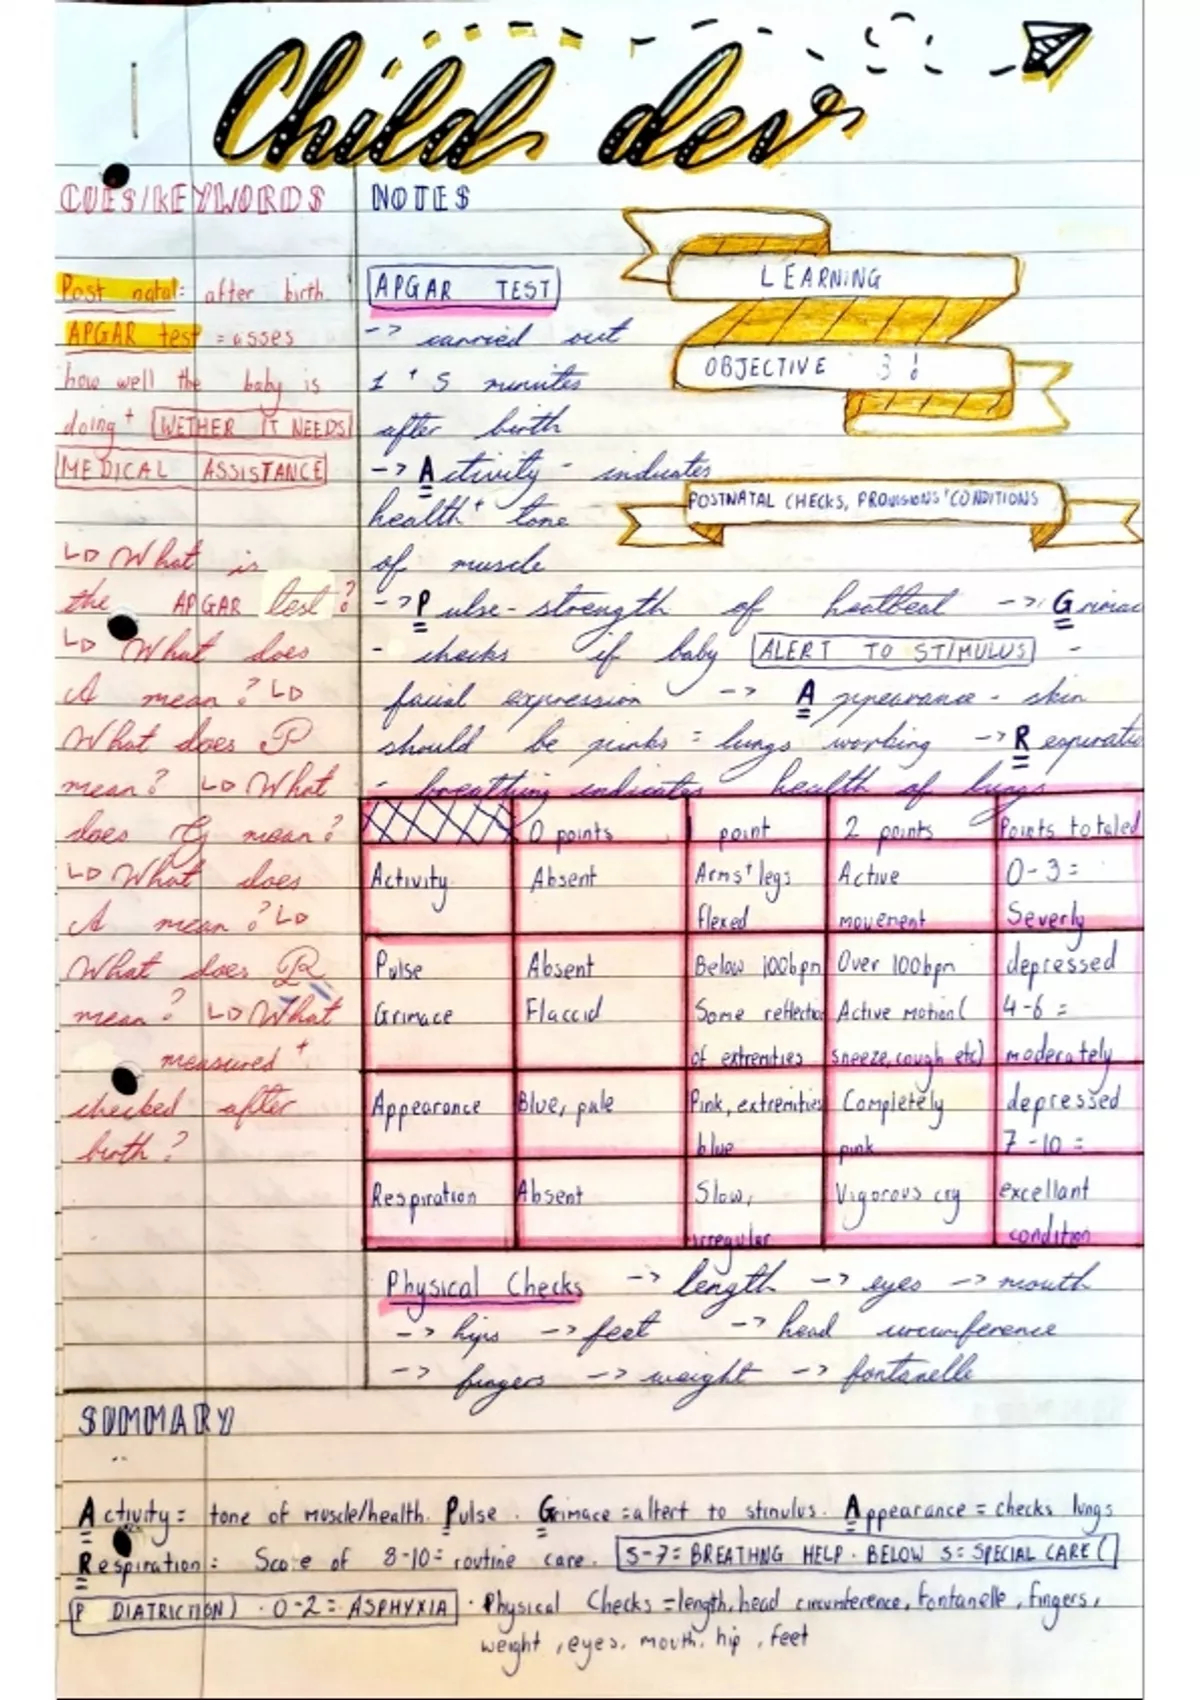 Child dev
CUES/KEYWORDS
Post natal: after birth
APGAR test = asses
how well the baby is
doing + WETHER IT NEEDS
MEDICAL ASSISTANCE
What is
the APGAR test?
What does
A mean? What does P
mean? What
does G mean?
What does
A mean?
What does R
mean? What
measured +
checked after
birth?
NOTES
LEARNING
OBJECTIVE 3!
POSTNATAL CHECKS, PROVISIONS + CONDITIONS
APGAR TEST
-> carried out
1 + 5 minutes
after birth
-> Activity - indicates
health + tone
of muscle
-> Pulse - strength of heatbeat -> Grimac
- checks if baby ALERT TO STIMULUS -
facial expression -> Appearance - skin
should be pink = lungs working -> Respiratio
- breathing indicates health of lungs
0 points 1 point 2 points Points totaled
Activity Absent Arms + legs Active 0-3 =
flexed movement Severly
Pulse Absent Below 100bpm Over 100bpm depressed
Grimace Flaccid Some reflection Active motion( 4-6 =
of extremities sneeze, cough etc) moderately
Appearance Blue, pale Pink, extremities Completely depressed
blue pink 7-10 =
Respiration Absent Slow, Vigorous cry excellant
irregular condition
Physical Checks -> length -> eyes -> mouth
-> hips -> feet -> head circumference
-> fingers -> weight -> fontanelle
SUMMARY
Activity = tone of muscle/health. Pulse. Grimace = altert to stimulus. Appearance = checks lungs
Respiration: Score of 8-10 = routine care. 5-7 = BREATHNG HELP. BELOW 5 = SPECIAL CARE (
P DIATRICTION) . 0-2 = ASPHYXIA . Physical Checks = length, head circumference, fontanelle, fingers,
weight, eyes, mouth, hip, feet